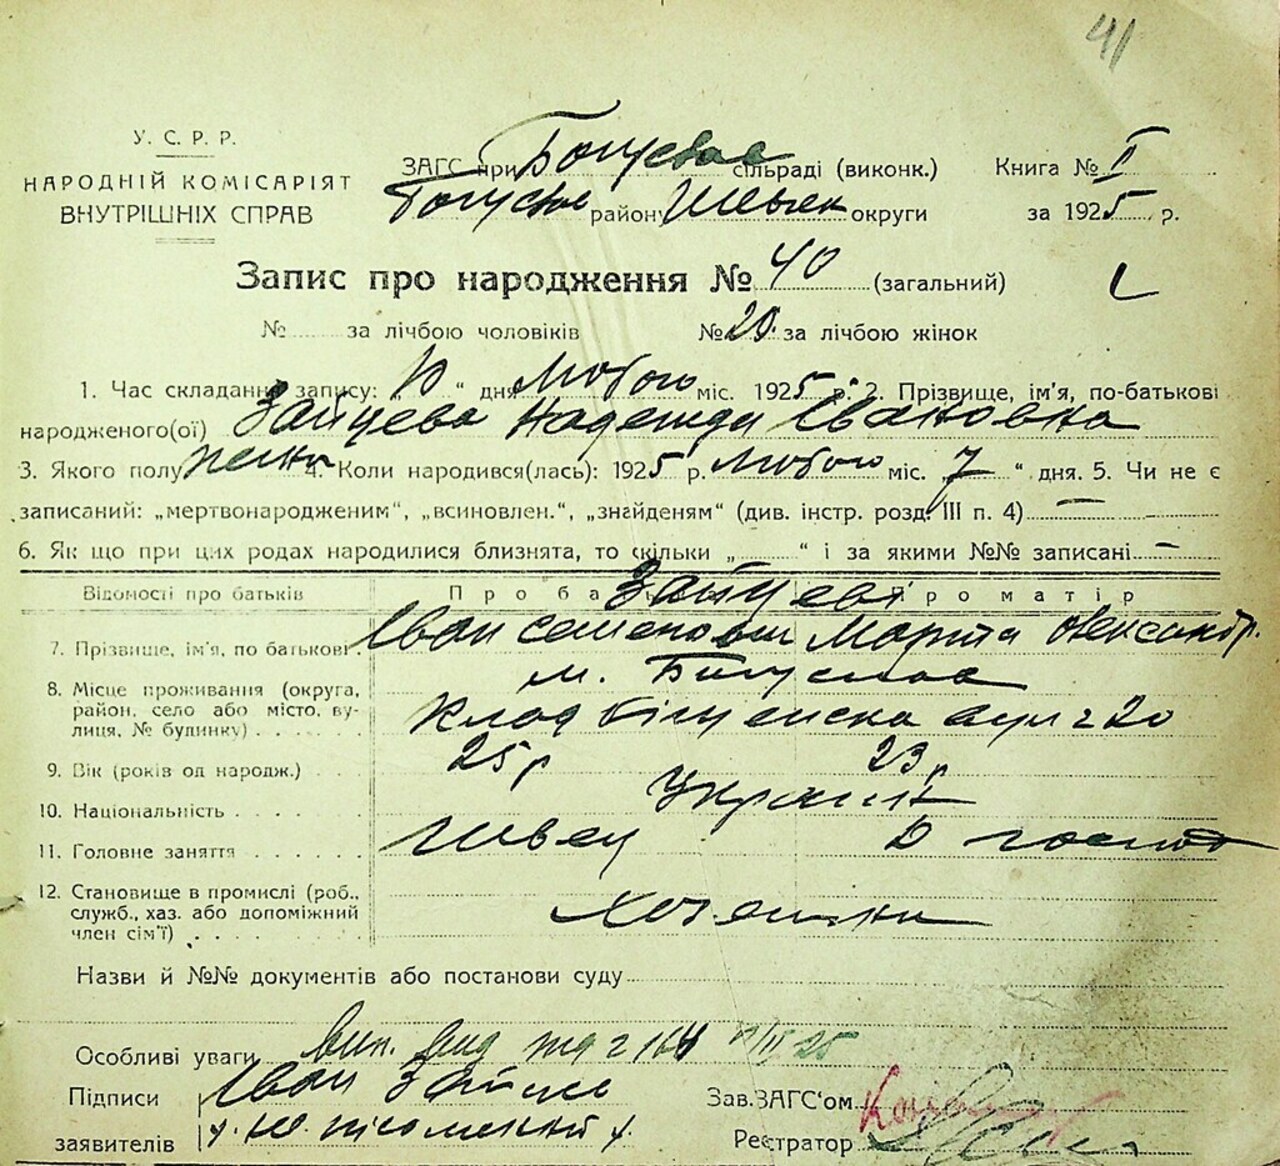 41
У. С. Р. Р.
НАРОДНІЙ КОМІСАРІЯТ
ВНУТРІШНІХ СПРАВ
ЗАГС при Богуслав сільраді (виконк.)
Богуслав району Шевчен округи
Книга № I
за 1925 р.
Запис про народження № 40 (загальний)
№ за лічбою чоловіків № 20. за лічбою жінок
1. Час складання запису: „10 “ дня Лютого міс. 1925 р. 2. Прізвище, ім'я, по-батькові
народженого(ої) Зайцева Надежда Івановна
3. Якого полу жено 4. Коли народився(лась): 1925 р. Лютого міс. „7 “ дня. 5. Чи не є
записаний: „мертвонародженим“, „всиновлен.“, „знайденям“ (див. інстр. розд. III п. 4) —
6. Як що при цих родах народилися близнята, то скільки „ “ і за якими №№ записані —
Відомості про батьків Про батька Про матір
Зайцеві
7. Прізвище, ім'я, по батькові. Іван Семенович Марфа Олександр.
8. Місце проживання (округа, район, село або місто, вулиця, № будинку) м. Богуслав
вул 20
9. Вік (років од народж.) 25 р 23 р
10. Національність Україн
11. Головне заняття Швец Д госпо
12. Становище в промислі (роб., служб., хаз. або допоміжний член сім'ї)
Назви й №№ документів або постанови суду
Особливі уваги 164 25
Підписи Іван
заявителів
Зав.ЗАГС'ом
Реєстратор